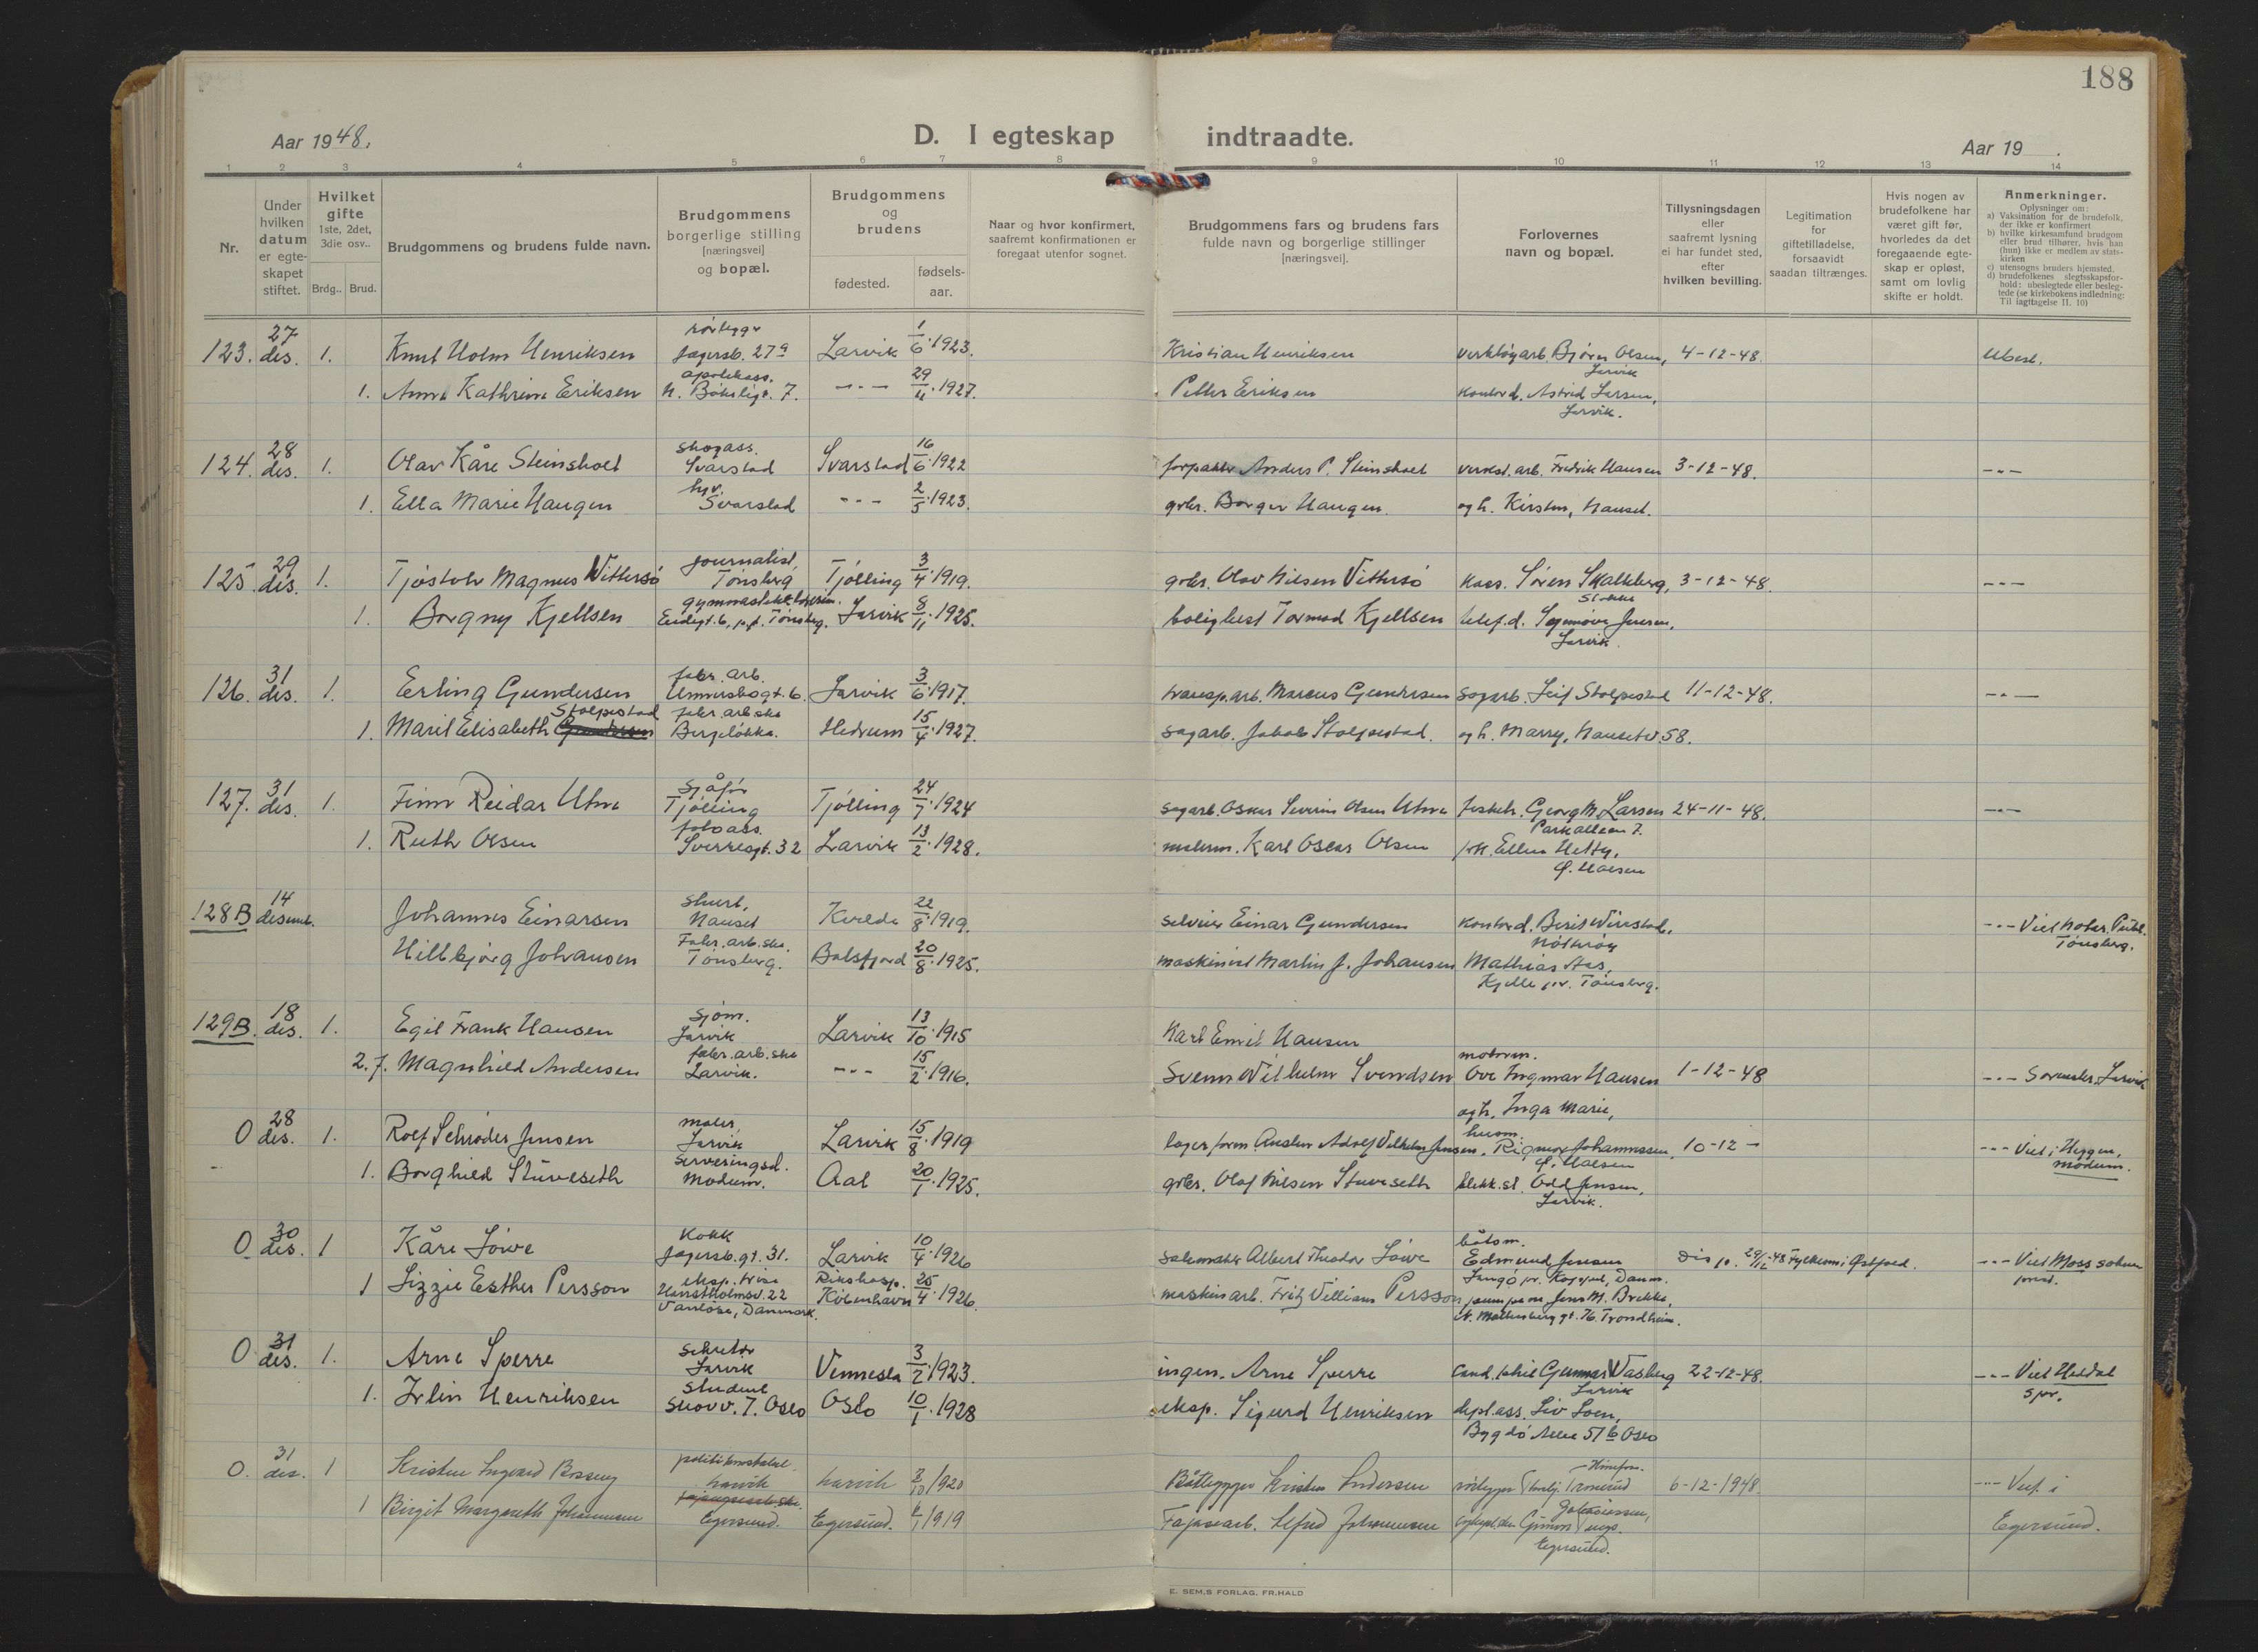 188
Aar 1948.
D. I egteskap indtraadte.
Aar 19 .
1 2 3 4 5 6 7 8 9 10 11 12 13 14
Nr.
Under hvilken datum er egteskapet stiftet.
Hvilket gifte 1ste, 2det, 3die osv..
Brdg.. Brud.
Brudgommens og brudens fulde navn.
Brudgommens borgerlige stilling [næringsvei] og bopæl.
Brudgommens og brudens
fødested.
fødselsaar.
Naar og hvor konfirmert, saafremt konfirmationen er foregaat utenfor sognet.
Brudgommens fars og brudens fars fulde navn og borgerlige stillinger [næringsvei].
Forlovernes navn og bopæl.
Tillysningsdagen eller saafremt lysning ei har fundet sted, efter hvilken bevilling.
Legitimation for giftetilladelse, forsaavidt saadan tiltrænges.
Hvis nogen av brudefolkene har været gift før, hvorledes da det foregaaende egteskap er opløst, samt om lovlig skifte er holdt.
Anmerkninger.
Oplysninger om:
a) Vaksination for de brudefolk, der ikke er konfirmert
b) hvilke kirkesamfund brudgom eller brud tilhører, hvis han (hun) ikke er medlem av statskirken
c) utensogns bruders hjemsted.
d) brudefolkenes slegtsskapsforhold: ubeslegtede eller beslegtede (se kirkebokens indledning: Til iagttagelse II. 10)
123. 27 des. 1. Knut Holm Henriksen rørlegger Jegersb. 27a Larvik 1/6.1923. Kristian Henriksen verktøyarb. Bjørn Olsen, Larvik 4-12-48. Ubesl.
1. Anna Kathrine Eriksen apotekass. N. Bøkeligt. 7. --- 29/4.1927. Petter Eriksen kontord. Astrid Larsen, Larvik.
124. 28 des. 1. Olav Kåre Steinsholt skogass. Svarstad Svarstad 16/6.1922 forpakter Anders P. Steinsholt verkst.arb. Fredrik Hansen 3-12-48. ---
1. Ella Marie Haugen Svarstad --- 2/5.1923. gbr. Borger Haugen. og h. Kirsten, Nanset.
125. 29 des. 1. Tjøstolv Magnus Vittersø journalist, Tønsberg Tjølling 3/4.1919. gbr. Olav Nilsen Vittersø kass. Søren Skalleberg, Stokke 3-12-48. ---
1. Borgny Kjellsen Larvik 8/11.1925. boligbest Tormod Kjellsen telef.d. Synnøve Jensen, Larvik.
126. 31 des. 1. Erling Gundersen fabr.arb. Larvik 3/6.1917. transp.arb. Marcus Gundersen sagarb. Leif Stolpestad 11-12-48. ---
1. Marit Elisabeth Stolpestad fabr.arb.ske Bergeløkka. Hedrum 15/4.1927. sagarb. Jakob Stolpestad. og h. Marry, Nansetv 58.
127. 31 des. 1. Finn Reidar Utne Sjåfør Tjølling Tjølling 24/7.1924 sagarb. Oskar Severin Olsen Utne Georg M. Larsen Parkalleen 7. 24-11-48. ---
1. Ruth Olsen fotoass. Sverresgt. 32 Larvik 13/2.1928. malerm. Karl Oscar Olsen frk. Ellen Hetty, Ø. Halsen
128B 14 desemb. Johannes Einarsen Nanset Kvelde 22/8.1919. Einar Gundersen kontord. Berit Wirestad, Nøtterøy --- Viet notar. Publ. Tønsberg.
Hillbjørg Johansen Fabr.arb.ske. Tønsberg. Balsfjord 20/8.1925. maskinist Martin J. Johansen Mathias Aas, Kjelle pr. Tønsberg.
129B. 18 des. 1. Egil Frank Hansen Sjøm. Larvik Larvik 13/10.1915 Karl Emil Hansen
2. Magnhild Andersen fabr.arb.ske Larvik. --- 15/2.1916. Svenn Wilhelm Svendsen motorm. Ove Ingmar Hansen og h. Inga Marie, 1-12-48 --- Sorenskr. Larvik
0 28 des. 1. Rolf Schrøder Jensen maler, Larvik Larvik 15/8.1919 lagerform. Anslen Adolf Vilhelm Jensen. husm. Rigmor Johannessen, Ø. Halsen 10-12- --- Viet i Heggen, Modum.
1. Borghild Stuveseth Serveringsd. Modum. Aal 20/1.1925. gbr. Olaf Nilsen Stuveseth blikk.sl. Odd Jensen, Larvik.
0. 30 des. 1 Kåre Löwe Kokk Jegersb.gt. 31. Larvik 10/4.1926 salemaker Albert Theodor Löwe båtsm. Edmund Jensen Fylkesm i Østfold. --- Viet Moss sokneprest.
1 Lizzie Esther Persson eksp.trise Hanstholmsv. 22 Vanløse, Danmark. Rikshosp. København 25/4.1926. maskinarb. Fritz Villiam Persson Jens M. Brekke, Trondheim.
0 31 des. 1. Arne Sperre Sekretær Larvik Vennesla 3/2.1923. ingen. Arne Sperre Cand. phil Gunnar Vasberg Larvik 22-12-48. --- Viet Heddal spr.
1. Irlin Henriksen Student Skovv. 7. Oslo Oslo 10/1.1928 eksp. Sigurd Henriksen depl.ass. Liv Loen, Bygdø Alle 51 b Oslo
0. 31 des. 1 politikonstabel Larvik Larvik /1920 Båtbygger Kristen Andersen rørlegger 6-12-1948. --- Viet i Egersund.
1 Birgit Margareth Johannessen Egersund. Egersund. /1919 Fajansearb. Alfred Johannessen Egersund.
E. SEM,S FORLAG, FR.HALD